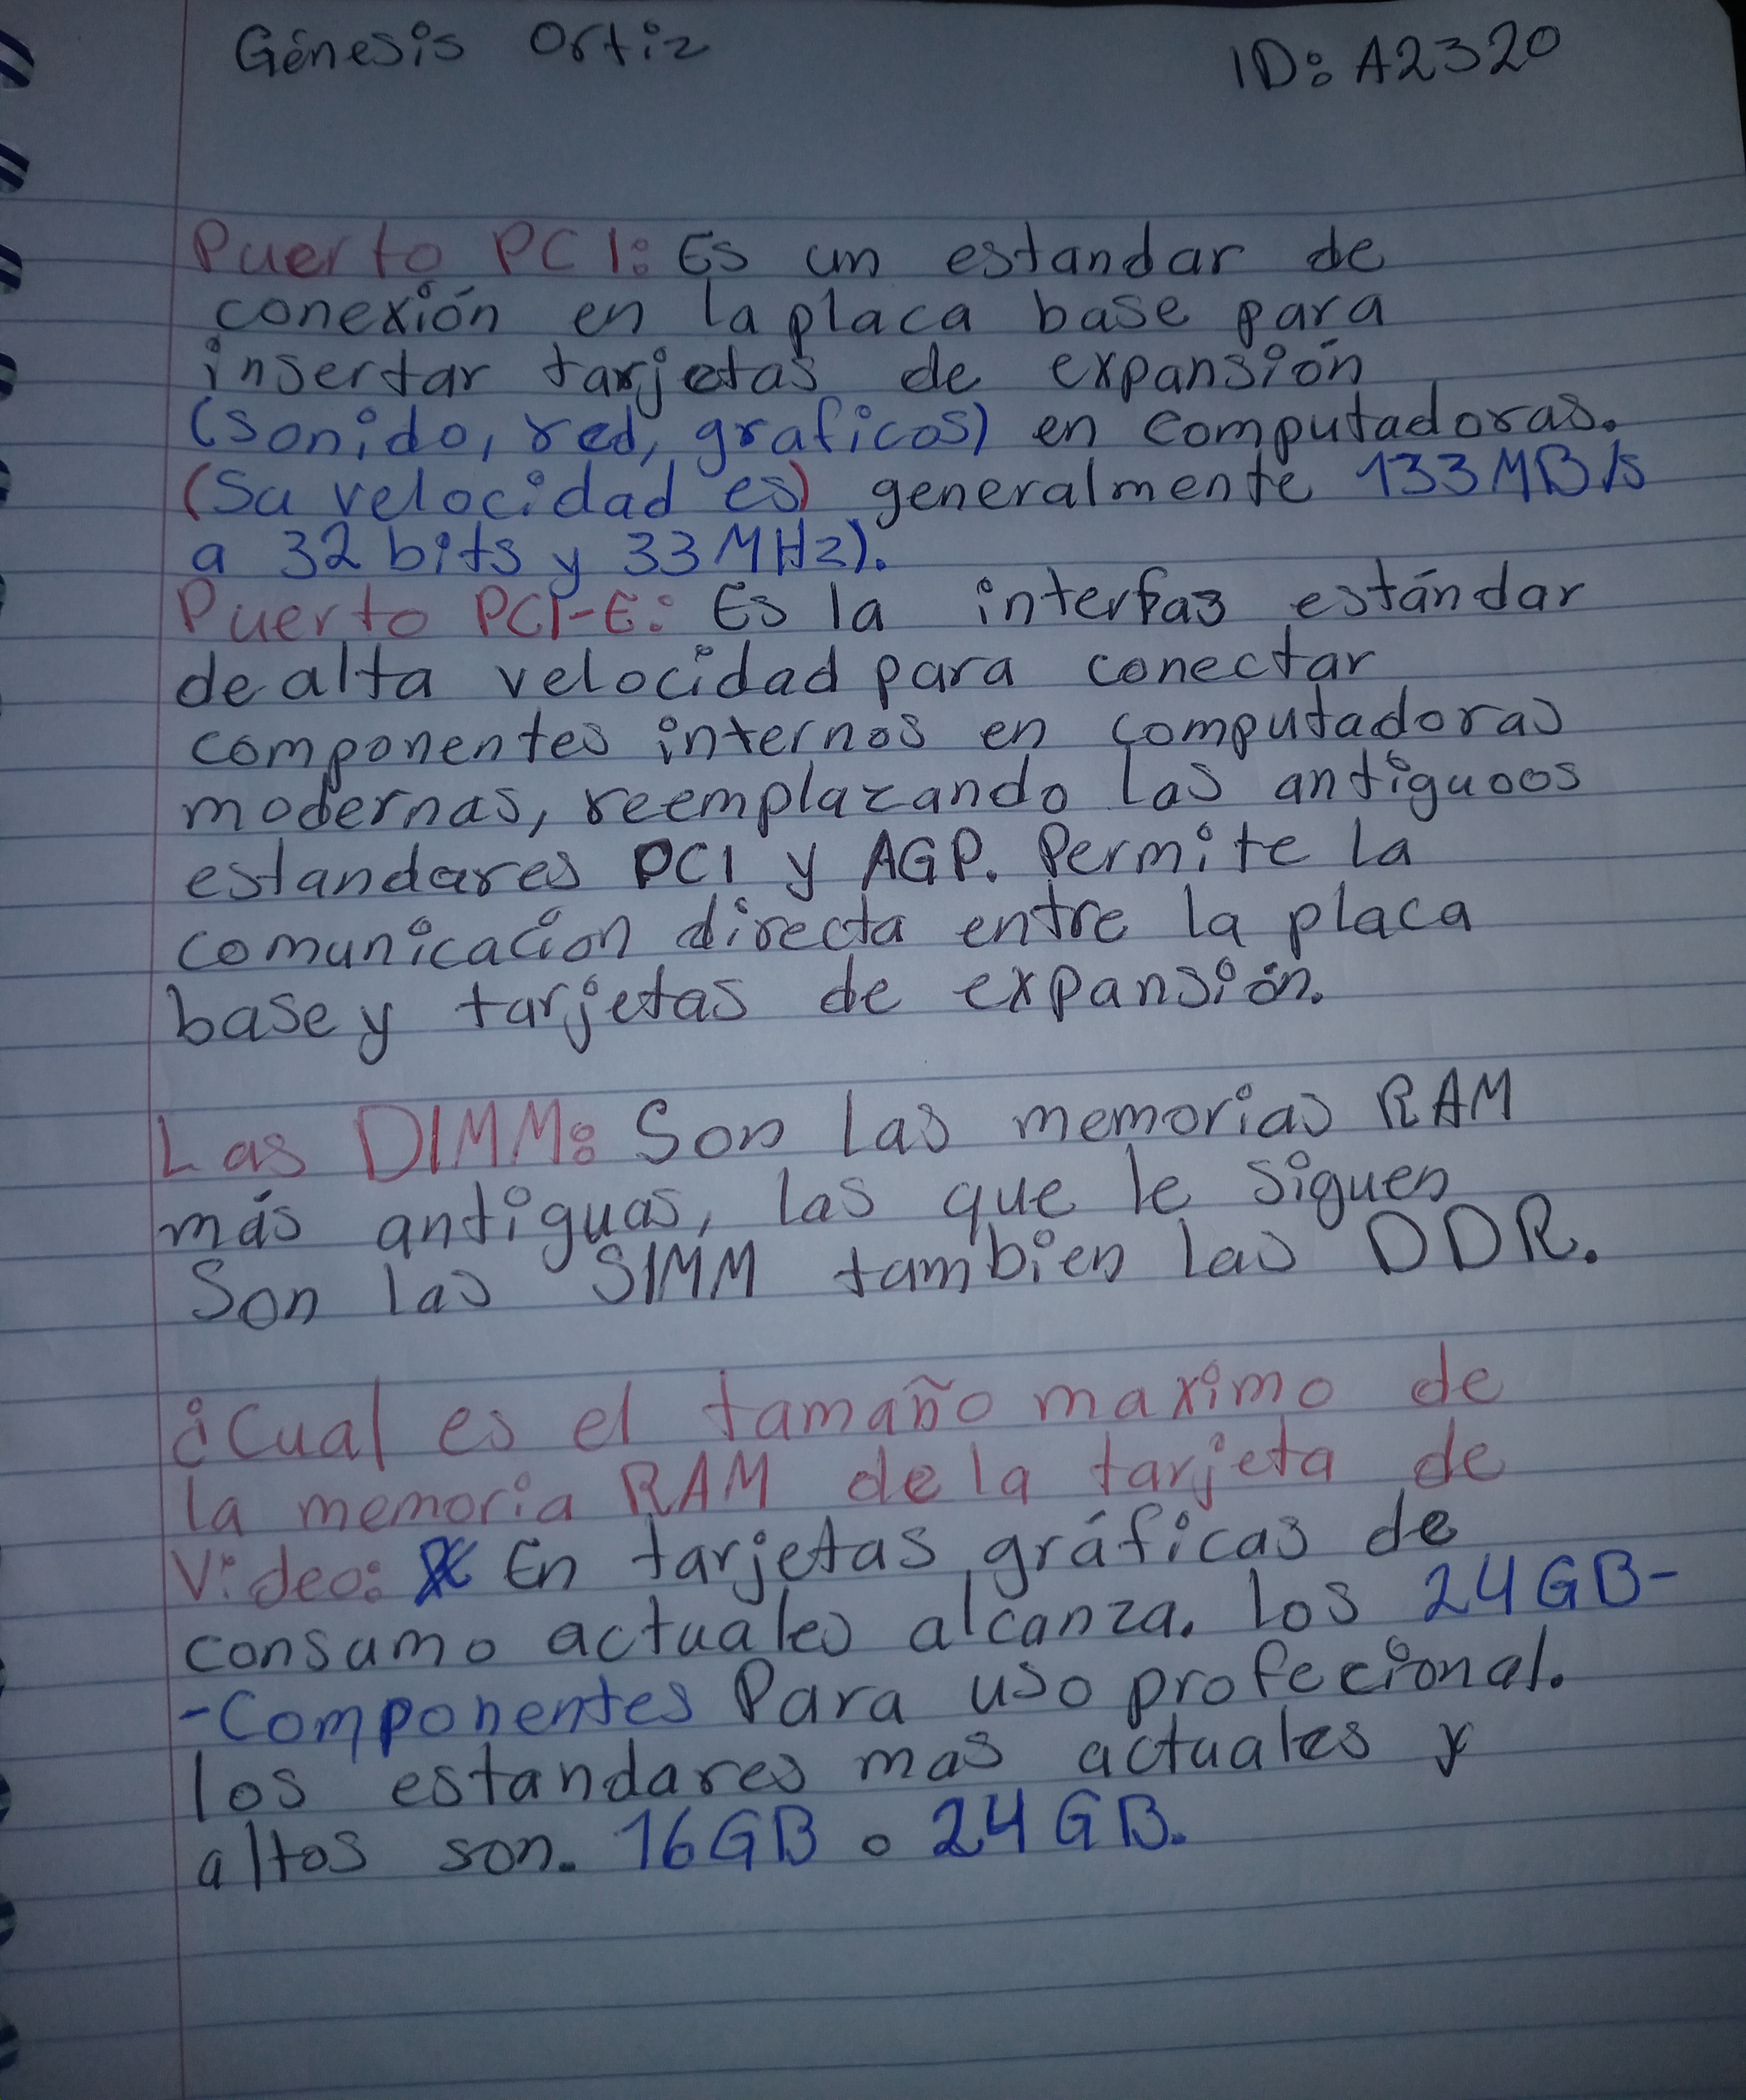 Génesis Ortiz
ID: A2320
Puerto PCI: Es un estandar de
conexión en la placa base para
insertar tarjetas de expansión
(sonido, red, graficos) en computadoras.
(Su velocidad es) generalmente 133MB/s
a 32 bits y 33 MHz).
Puerto PCI-E: Es la interfaz estándar
de alta velocidad para conectar
componentes internos en computadoras
modernas, reemplazando las antiguoos
estandares PCI y AGP. Permite la
comunicación directa entre la placa
base y tarjetas de expansión.
Las DIMM: Son las memorias RAM
más antiguas, las que le siguen
Son las SIMM tambien las DDR.
¿Cual es el tamaño maximo de
la memoria RAM de la tarjeta de
Video: En tarjetas gráficas de
consumo actuales alcanza. los 24GB-
-Componentes Para uso profecional.
los estandares mas actuales y
altos son. 16GB o 24GB.